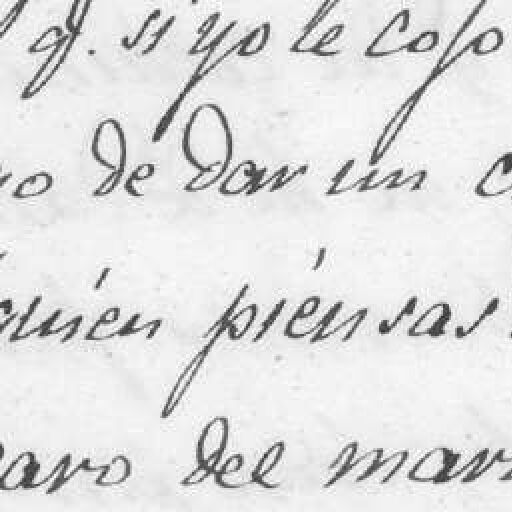 q. si yo le cojo
no de dar un
quien piensas
claro del mar